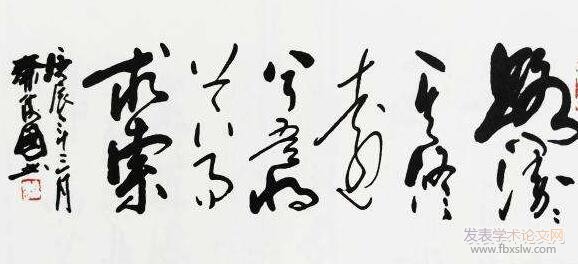 路漫漫
其修
遠
兮吾將
上下而
求索
庚辰 月
國书
发表学术论文网
www.fbxslw.com